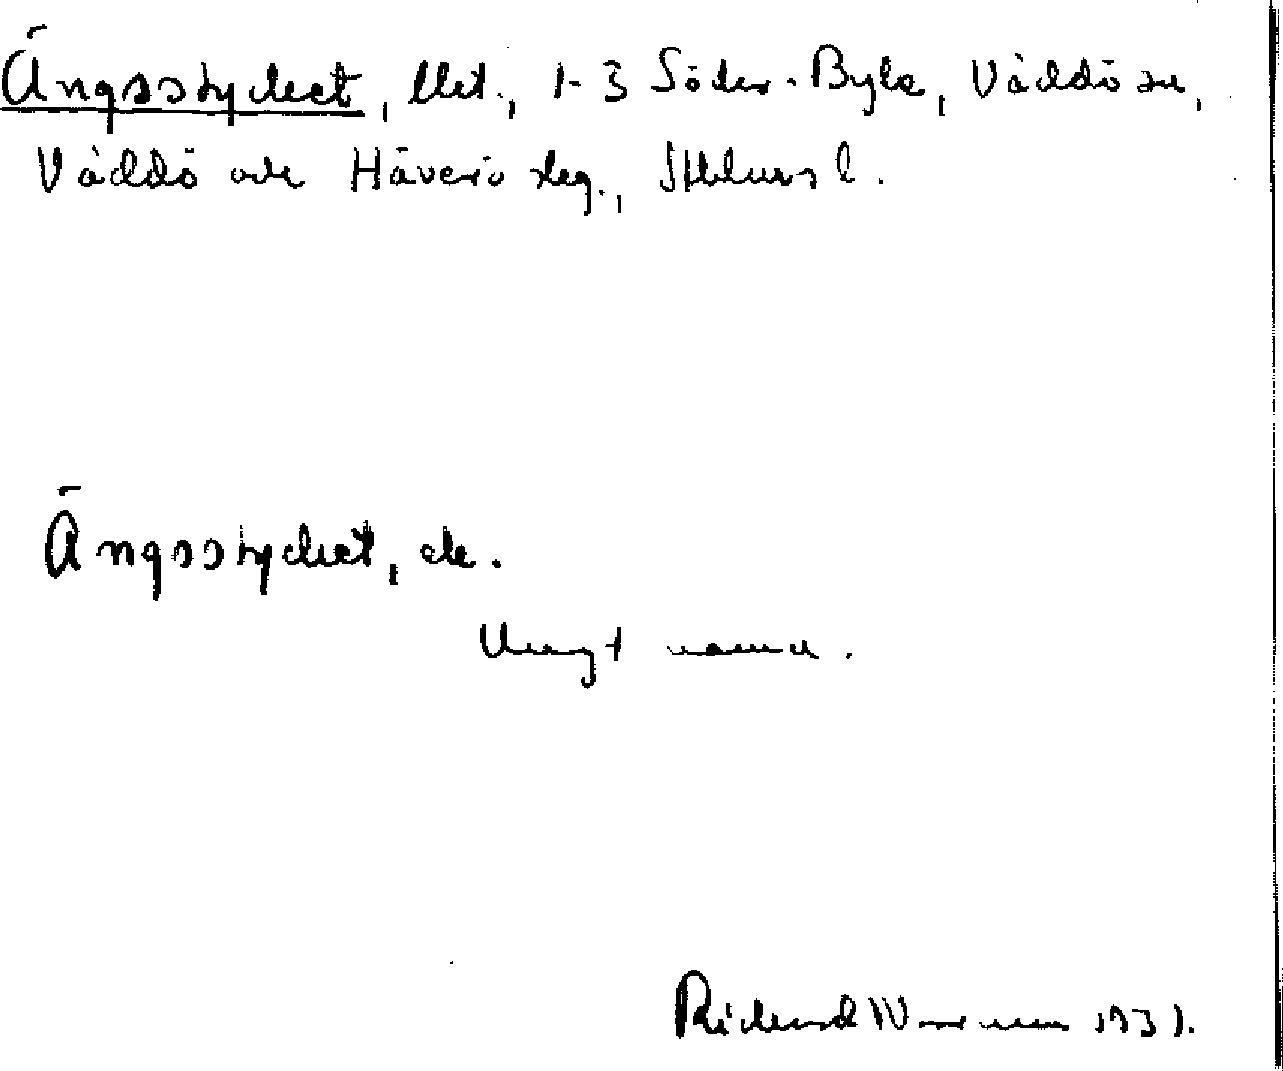 Ängsstycket, llht., 1-3 Söder-Byle, Väddö sn,
Väddö och Häverö skg., Sthlms l.
Ängsstycket, de.
Ungt namn.
Richard Wennman 1931.